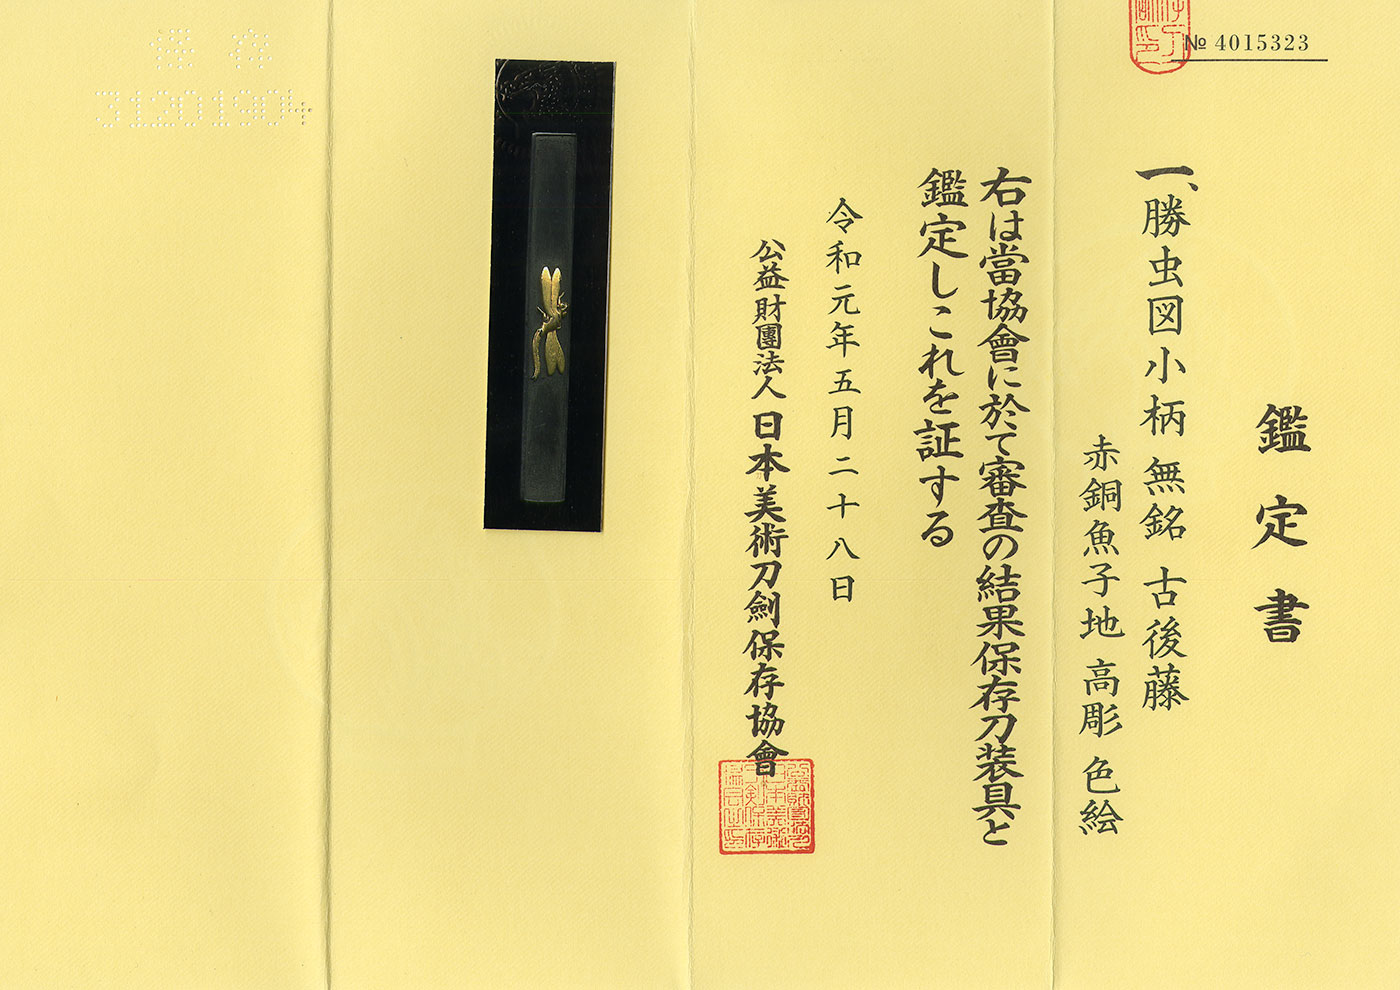 № 4015323
鑑定書
一、勝虫図小柄 無銘 古後藤
赤銅魚子地 高彫 色絵
右は當協會に於て審査の結果保存刀装具と
鑑定しこれを証する
令和元年五月二十八日
公益財團法人 日本美術刀劍保存協會
保存
31201904